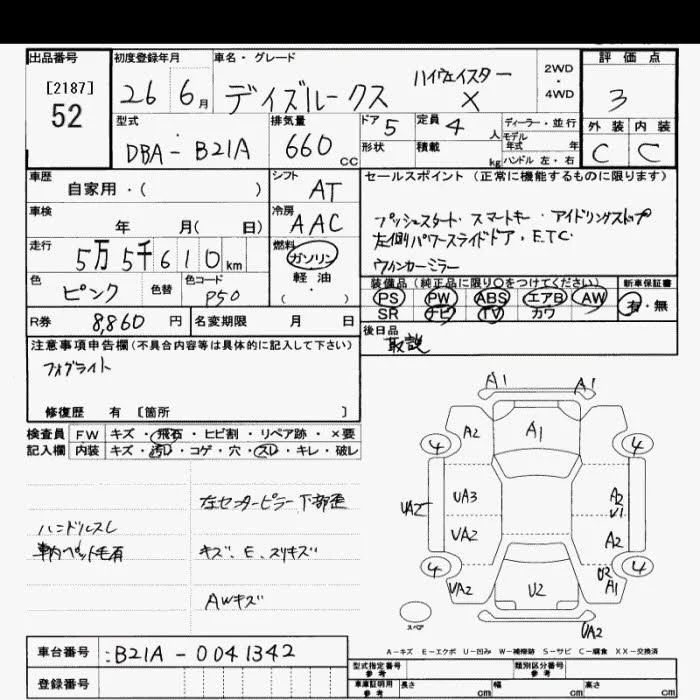 出品番号 初度登録年月 車名・グレード 評価点
[2187]
52
26 6月 デイズルークス ハイウェイスター X 2WD・4WD 3
型式 排気量 ドア 5 定員 4人 ディーラー・並行 外装 内装
DBA-B21A 660cc 形状 積載 kg モデル年式 年 C C
ハンドル 左・右
車歴 シフト セールスポイント(正常に機能するものに限ります)
自家用・( ) AT
車検 年 月( 日) 冷房 AAC
プッシュスタート・スマートキー・アイドリングストップ
左側パワースライドドア・ETC
ウィンカーミラー
走行 5万5千610km 燃料 ガソリン 軽油 ・( )
色 ピンク 色替 色コード P50
装備品(純正品に限り○をつけてください) 新車保証書
PS PW ABS エアB AW 有・無
SR ナビ TV カワ
R券 8,860円 名変期限 月 日
後日品 取説
注意事項申告欄(不具合内容等は具体的に記入して下さい)
フォグライト
修復歴 有 [箇所 ]
検査員 FW キズ・飛石・ヒビ割・リペア跡・×要
記入欄 内装 キズ・汚レ・コゲ・穴・スレ・キレ・破レ
左センターピラー下部歪
ハンドルスレ
車内ペット毛有
キズ、E、スリキズ
AWキズ
A1 A1
A2 A1
4 4
UA2 UA3 A2 U1
UA2 A2
4 4
UA2 U2 U2 A1
UA2
スペア
A-キズ E-エクボ U-凹み W-補修跡 S-サビ C-腐食 XX-交換済
車台番号 B21A-0041342
登録番号
型式指定番号 参考 類別区分番号 参考
車庫証明用 参考 長さ cm 幅 cm 高さ cm